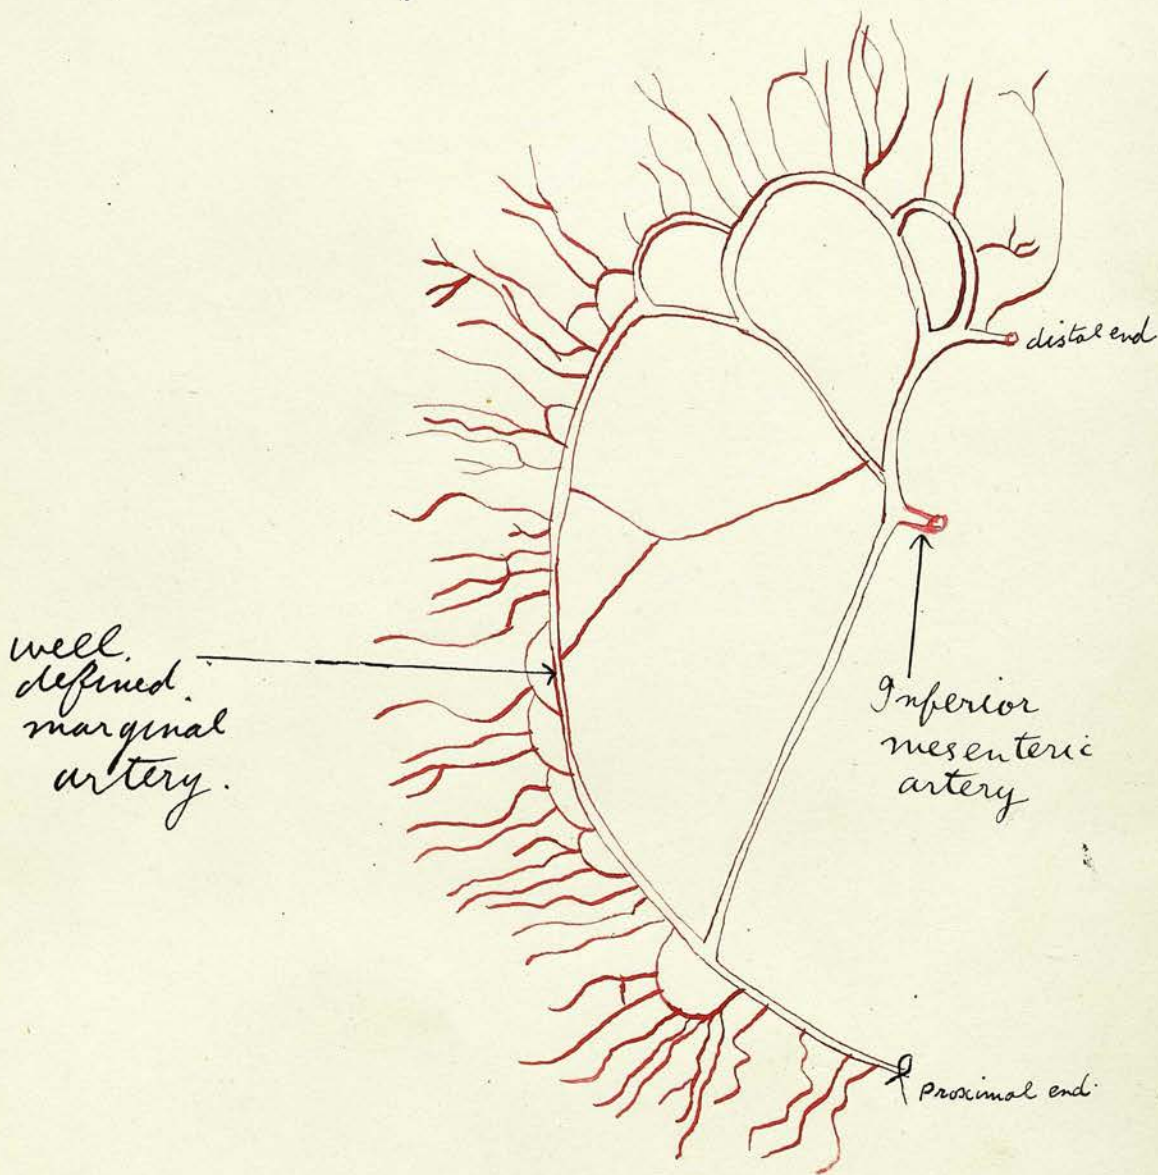 distal end
well.
defined.
marginal
artery.
Inferior
mesenteric
artery
Proximal end.